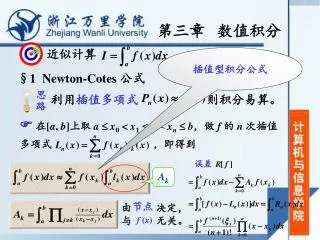 浙江万里学院
Zhejiang Wanli University
第三章 数值积分
近似计算 I = ∫_a^b f(x)dx
插值型积分公式
§1 Newton-Cotes 公式
思路
利用插值多项式 P_n(x) 则积分易算。
在[a, b]上取 a ≤ x_0 < x_1 < … < x_n ≤ b，做 f 的 n 次插值
多项式 L_n(x) = ∑_{k=0}^n f(x_k) l_k(x)，即得到
误差 R[f]
∫_a^b f(x)dx ≈ ∑_{k=0}^n f(x_k) ∫_a^b l_k(x)dx
A_k
= ∫_a^b f(x)dx − ∑_{k=0}^n A_k f(x_k)
= ∫_a^b [f(x) − L_n(x)]dx = ∫_a^b R_n(x)dx
A_k = ∫_a^b ∏_{j≠k} (x−x_j)/(x_k−x_j) dx
由节点决定，
与 f(x) 无关。
= ∫_a^b f^{(n+1)}(ξ_x)/(n+1)! ∏_{k=0}^n (x − x_k)dx
计算机与信息学院